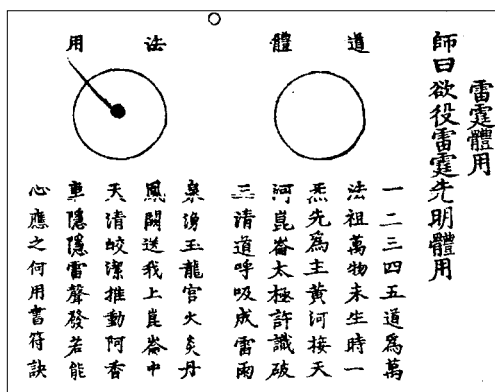 雷霆體用
師曰欲役雷霆先明體用
道體
一二三四五道爲萬
法祖萬物未生時一
炁先爲主黃河接天
河崑崙太極許識破
三清道呼吸成雷雨
法用
泉湧玉龍宮火炎丹
鳳闕送我上崑崙中
天清皎潔推動阿香
車隱隱雷聲發若能
心應之何用書符訣